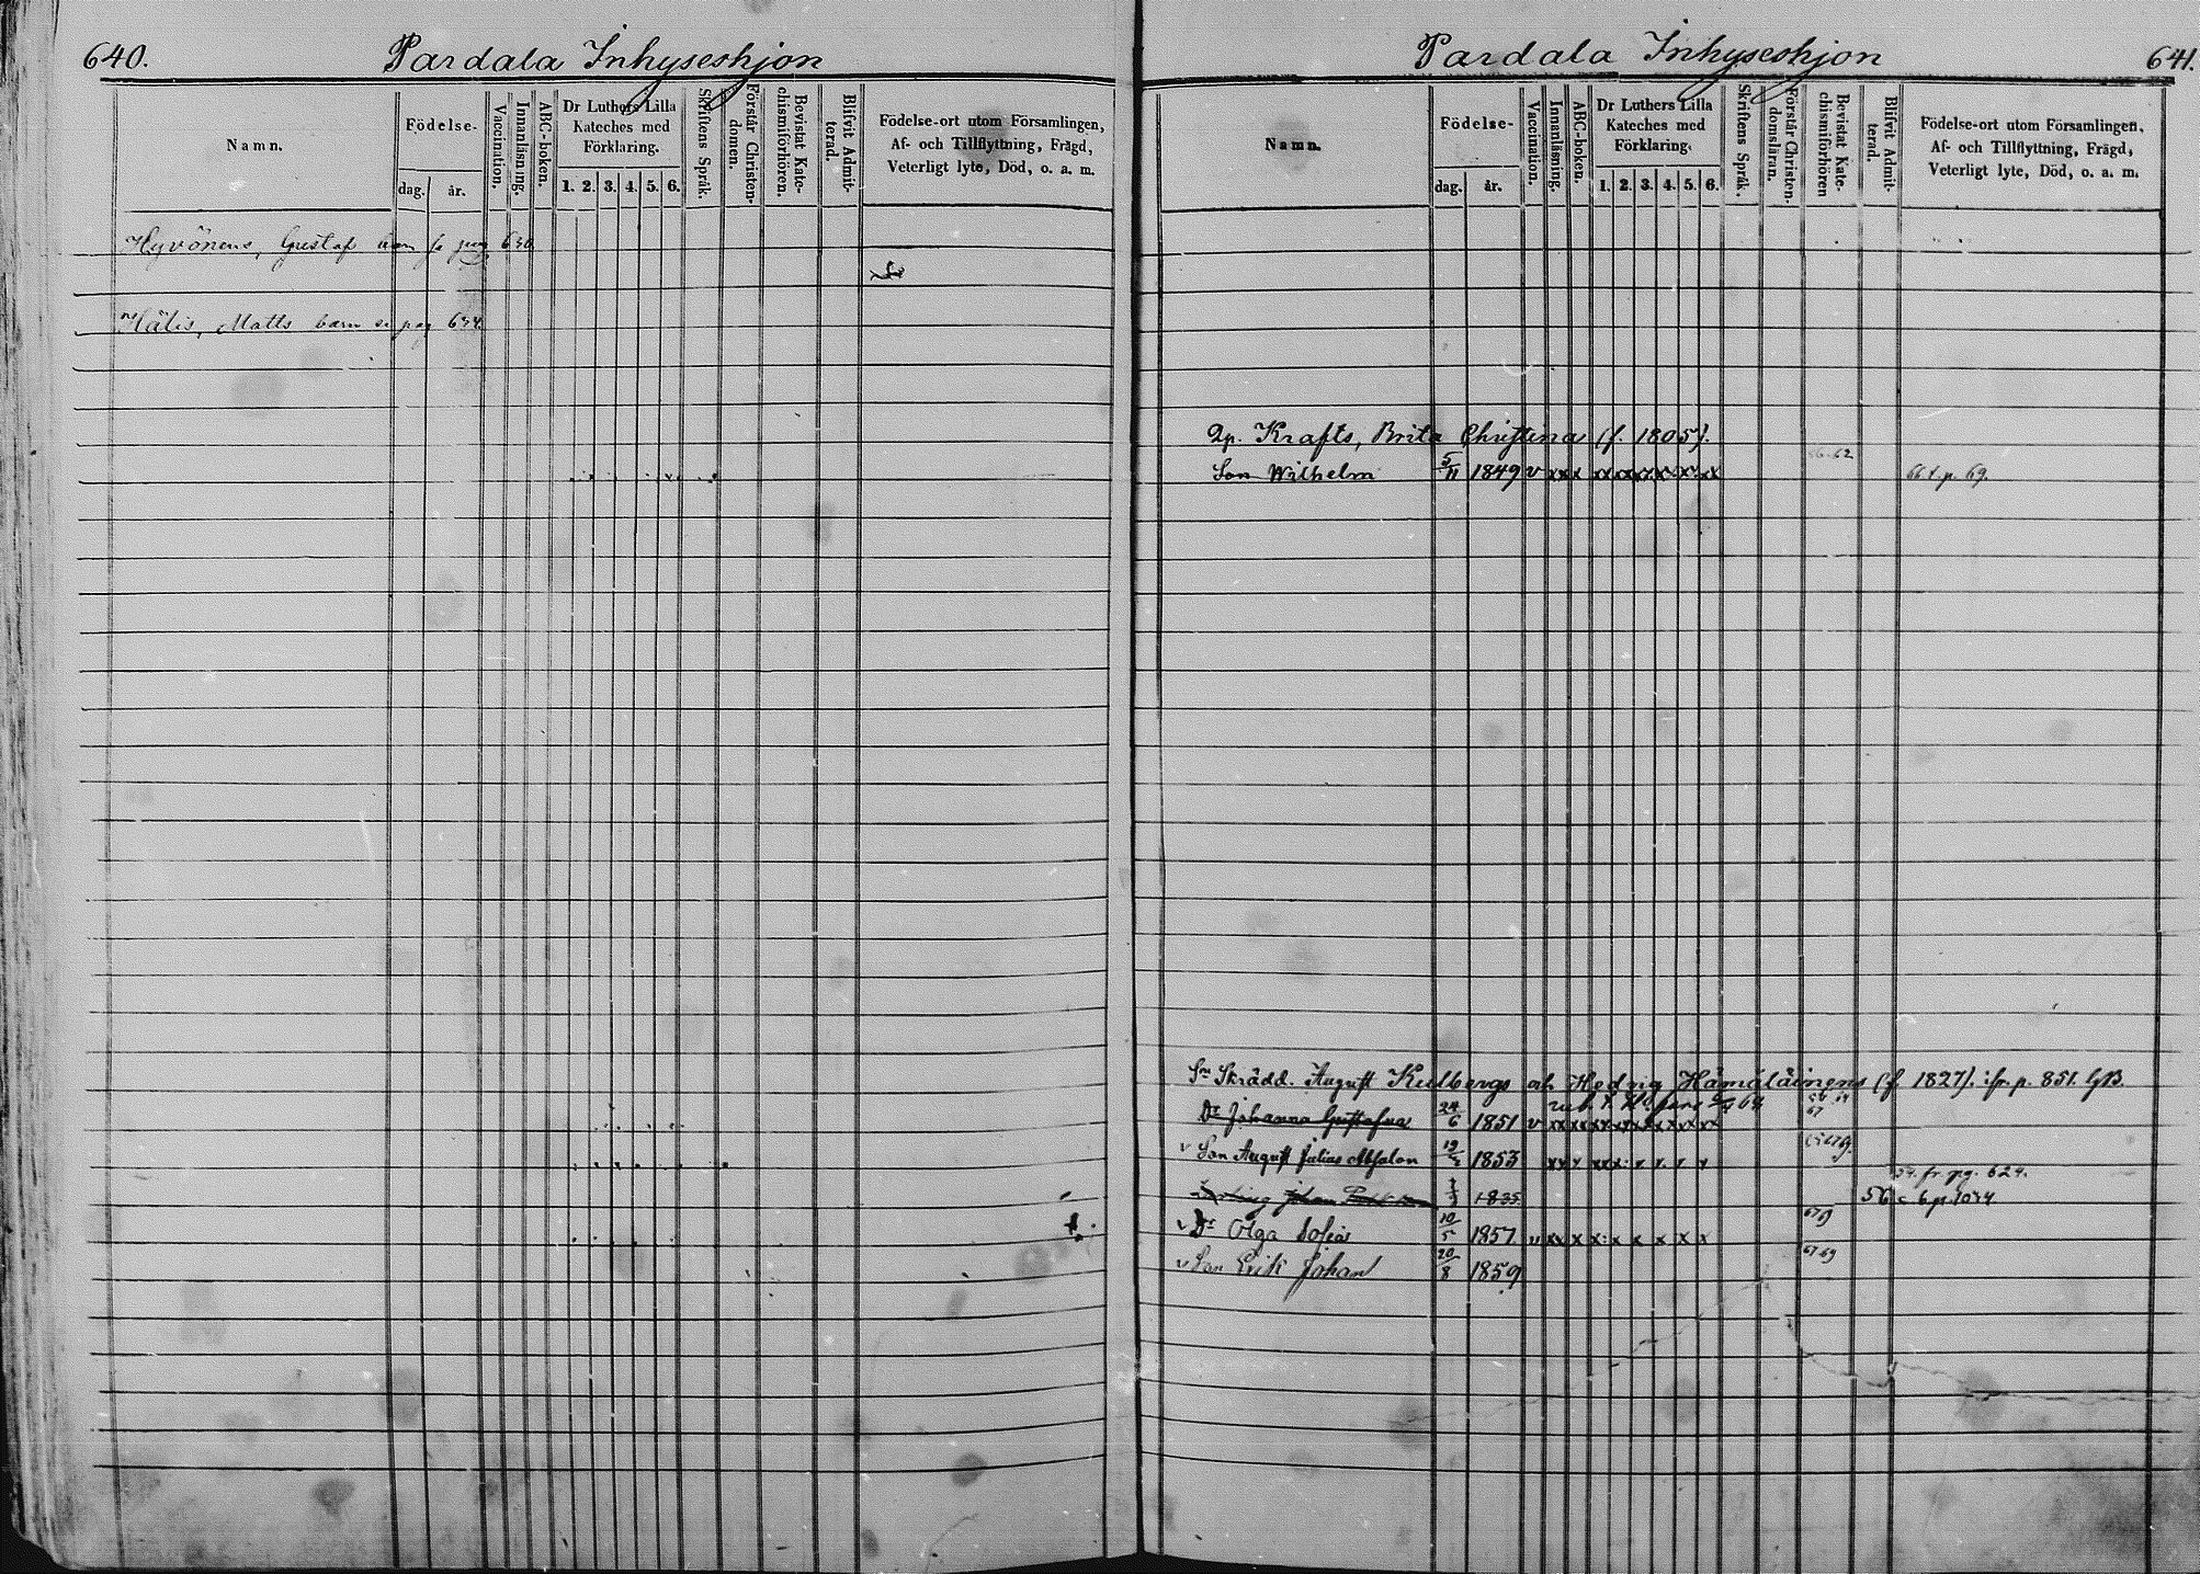 640.
Pardala Inhyseshjon
Namn.
Födelse-
dag.
år.
Vaccination.
Innanläsning.
ABC-boken.
Dr Luthers Lilla
Kateches med
Förklaring.
1. 2. 3. 4. 5. 6.
Skriftens Språk.
Förstår Christen-
domen.
Bevistat Kate-
chismiförhören.
Blifvit Admit-
terad.
Födelse-ort utom Församlingen,
Af- och Tillflyttning, Frägd,
Veterligt lyte, Död, o. a. m.
Hyvönens, Gustaf barn se pag
Hälis, Matts barn se pag 634.
Pardala Inhyseshjon
641.
Namn.
Födelse-
dag.
år.
Vaccination.
Innanläsning.
ABC-boken.
Dr Luthers Lilla
Kateches med
Förklaring.
1. 2. 3. 4. 5. 6.
Skriftens Språk.
Förstår Christen-
domsläran.
Bevistat Kate-
chismiförhören
Blifvit Admit-
terad.
Födelse-ort utom Församlingen,
Af- och Tillflyttning, Frägd,
Veterligt lyte, Död, o. a. m.
Qp. Krafts, Brita Christina (f. 1805).
Son Wilhelm 5/11 1849 v xx x xx xx x x x xx 66 t. p. 69.
Sn Skrädd. August Kulbergs och Hedvig Hämäläinens (f. 1827). ifr. p. 851. GB.
Dr Johanna Gustafva 24/6 1851 v 67
v Son August Julius Absalon 1853
1835 fr. pg. 624.
56
v Dr Olga Sofia 10/5 1857 v xx x x: x x x x x
v Son Erik Johan 20/8 1859 67 69